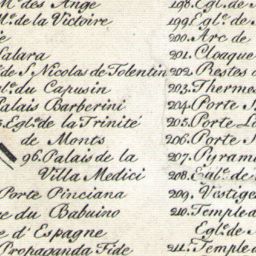 M. des Ange
M. de la Victoire
Salara
de S Nicolas de Tolentin
Egl. du Capusin
Palais Barberini
Egl. de la Trinité
de Monts
96. Palais de la
Villa Medici
Porte Pinciana
du Babuino
d'Espagne
Propaganda Fide
198. Egl. de
199. Egl. de
200. Arc de
201. Cloaque
202. Restes
203. Thermes
204. Porte
205. Porte
206. Porte
207. Pyrami
208. Egl. de
209. Vestige
210. Temple
Egl. de
211. Temple